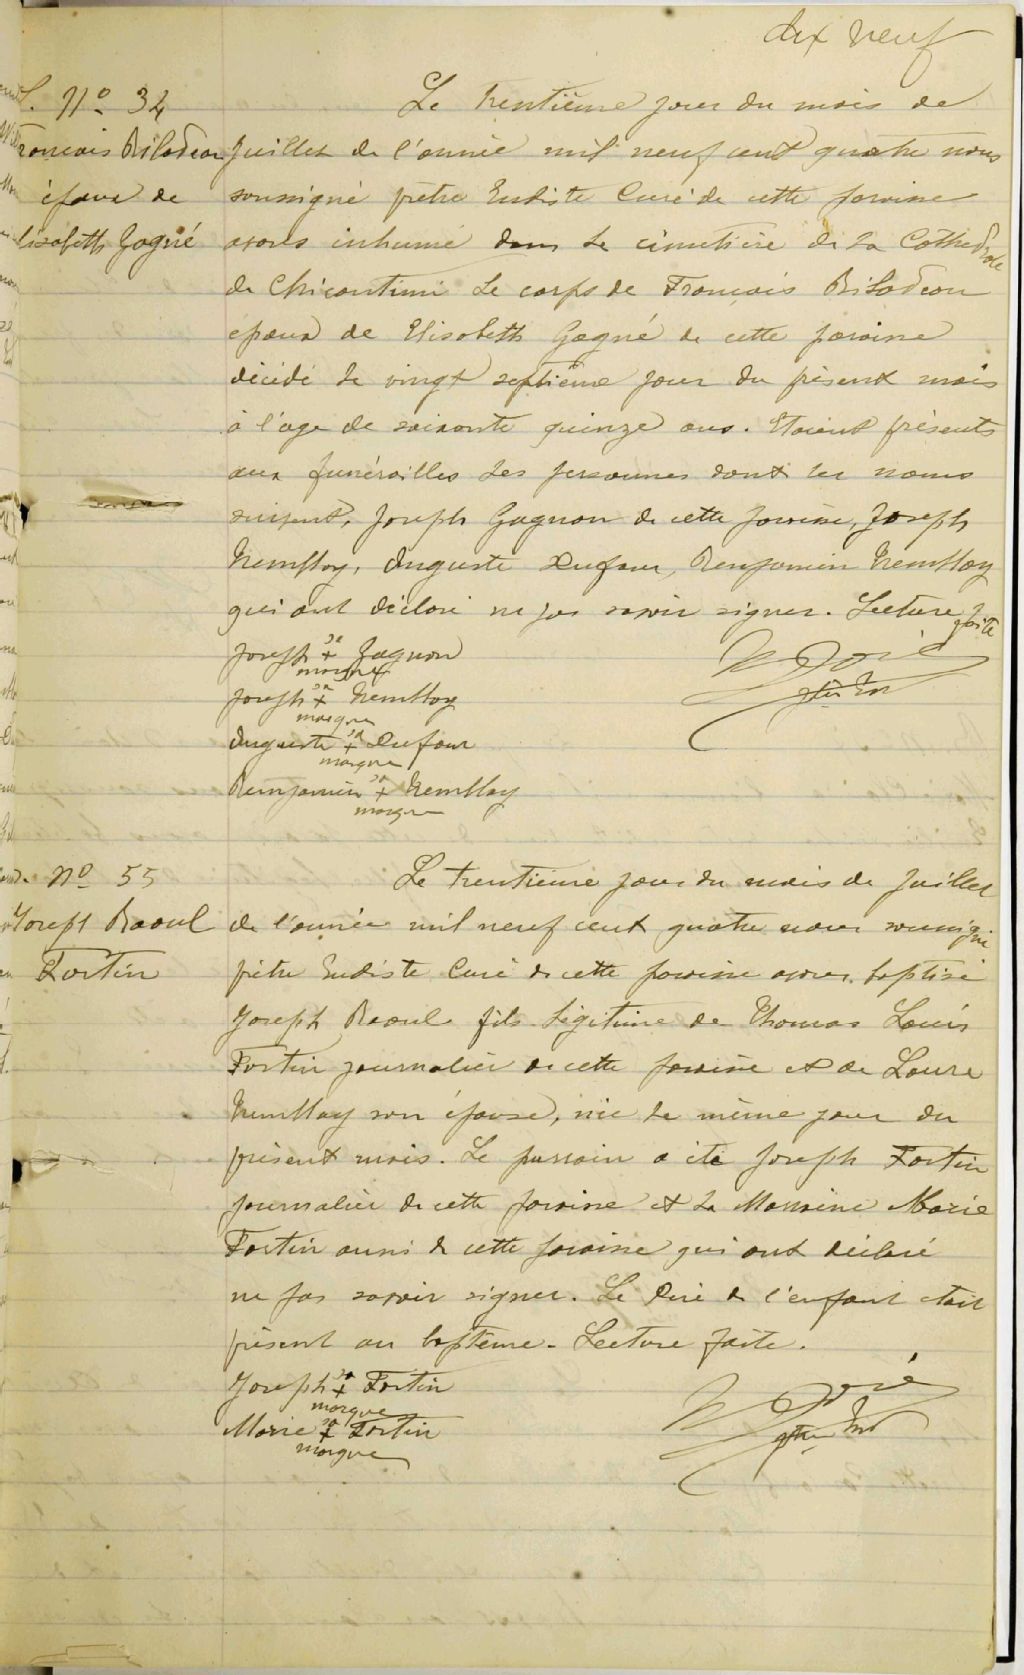 dix neuf
S. No 34
François Bilodeau
époux de
Elizabeth Gagné
Le trentième jour du mois de
Juillet de l'année mil neuf cent quatre nous
soussigné prêtre Eudiste Curé de cette paroisse
avons inhumé dans le cimetière de la Cathédrale
de Chicoutimi le corps de François Bilodeau
époux de Elisabeth Gagné de cette paroisse
décédé le vingt septième jour du présent mois
à l'age de soixante quinze ans. Etaient présents
aux funérailles les personnes dont les noms
suivent, Joseph Gagnon de cette paroisse, Joseph
Tremblay, Auguste Dufour, Benjamin Tremblay
qui ont déclaré ne pas savoir signer. Lecture faite
Joseph sa + marque Gagnon
Joseph sa + marque Tremblay
Auguste sa + marque Dufour
Benjamin sa + marque Tremblay
Doré
ptre
No 55
Joseph Raoul
Fortin
Le trentième jour du mois de Juillet
de l'année mil neuf cent quatre nous soussigné
prêtre Eudiste Curé de cette paroisse avons baptisé
Joseph Raoul fils légitime de Thomas Louis
Fortin journalier de cette paroisse et de Laure
Tremblay son épouse, née le même jour du
présent mois. Le parrain a été Joseph Fortin
journalier de cette paroisse et la Marraine Marie
Fortin aussi de cette paroisse qui ont déclaré
ne pas savoir signer. Le Père de l'enfant était
présent au baptême. Lecture faite.
Joseph sa + marque Fortin
Marie sa + marque Fortin
Doré
ptre